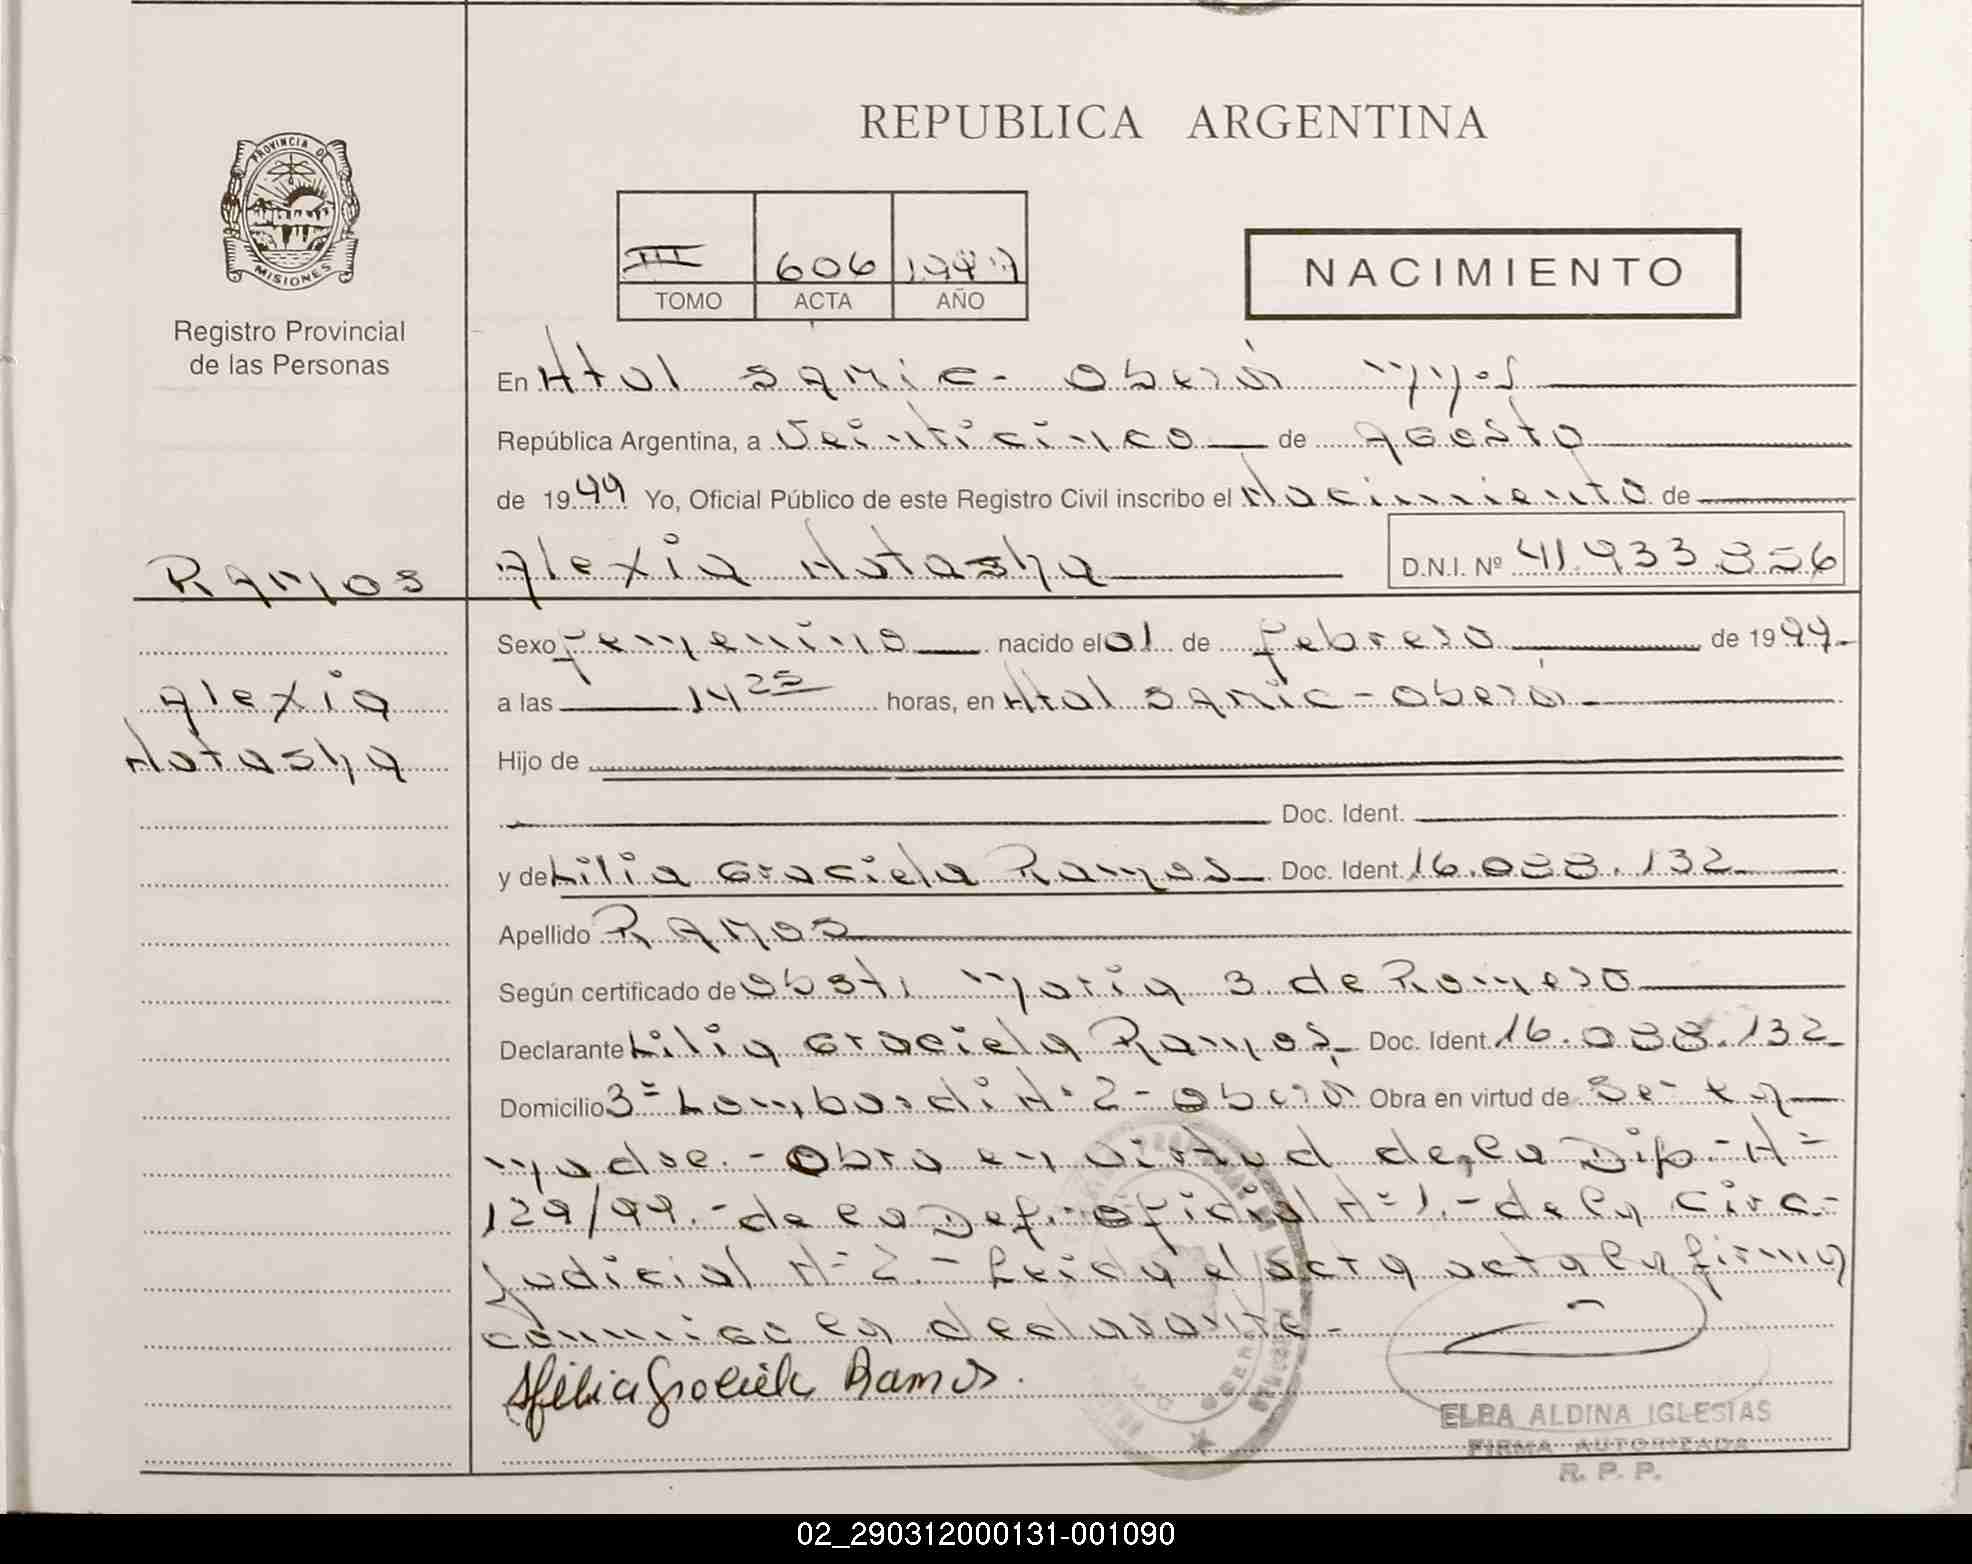 REPUBLICA ARGENTINA
PROVINCIA DE
MISIONES
Registro Provincial
de las Personas
III 606 1999
TOMO ACTA AÑO
NACIMIENTO
En Htal Samic - Oberá Mnes
República Argentina, a Veinticinco de Agosto
de 1999 Yo, Oficial Público de este Registro Civil inscribo el Nacimiento de
RAMOS
Alexia Natasha
D.N.I. Nº 41.933.856
Sexo femenino nacido el 01 de febrero de 1999.
Alexia
Natasha
a las 14 25 horas, en Htal Samic - Oberá
Hijo de
Doc. Ident.
y de Lilia Graciela Ramos Doc. Ident. 16.088.132
Apellido RAMOS
Según certificado de Obst. María S. de Romero
Declarante Lilia Graciela Ramos Doc. Ident. 16.088.132
Domicilio Bº Lombardi Nº 2 - Oberá Obra en virtud de Ser la
madre. - Obra en virtud de la Dip. Nº
129/99. - de la Def. Oficial Nº 1. - de la Circ.
Judicial Nº 2. - Leida el acta la firma
conmigo la declarante. -
Lilia Graciela Ramos.
ELBA ALDINA IGLESIAS
FIRMA AUTORIZADA
R. P. P.
02_290312000131-001090